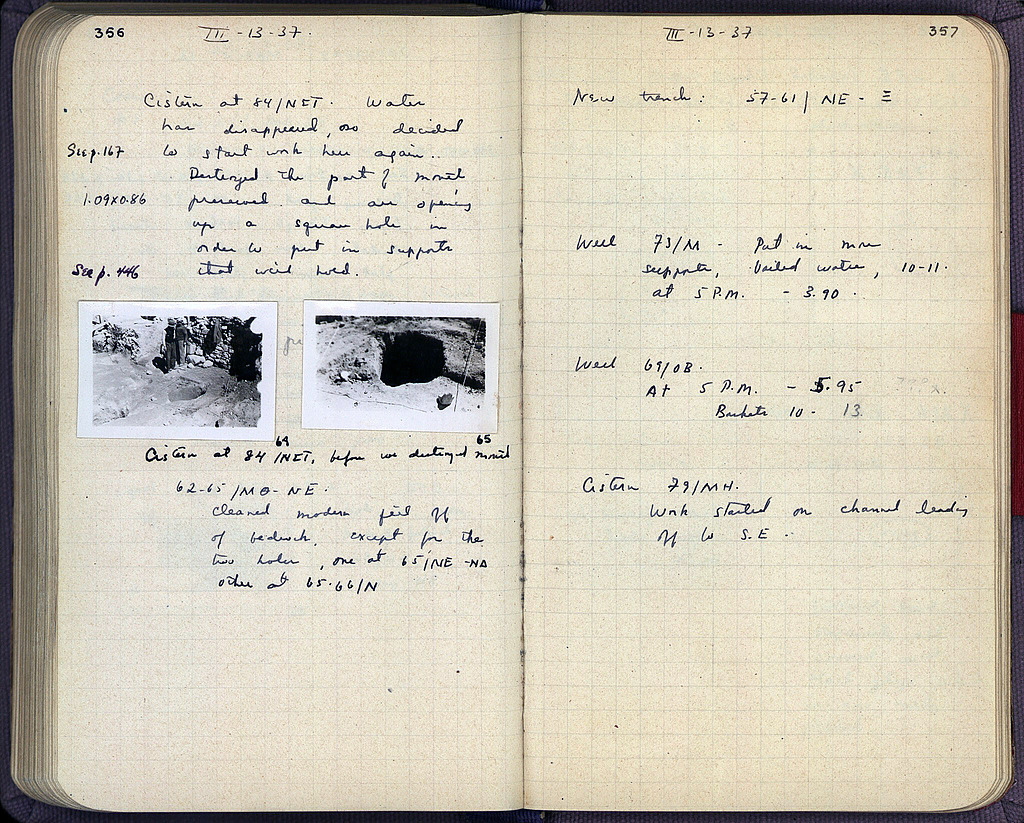 366
III-13-37.
Cistern at 84/NET. Water
has disappeared, so decided
See p. 167
to start work here again..
Destroyed the part of mouth
1.09x0.86
preserved and are opening
up a square hole in
order to put in supports
See p. 446
that will hold.
64
65
Cistern at 84/NET, before we destroyed mouth
62-65/MΘ-NE.
Cleaned modern fill off
of bedrock, except for the
two holes, one at 65/NE-NΔ
other at 65-66/N
III-13-37
357
New trench: 57-61/NE-Ξ
Well 73/M - Put in more
supports, bailed water, 10-11.
at 5 P.M. - 3.90.
Well 69/OB.
At 5 P.M. - 5.95
Baskets 10 - 13.
Cistern 79/MH.
Work started on channel leading
off to S.E.